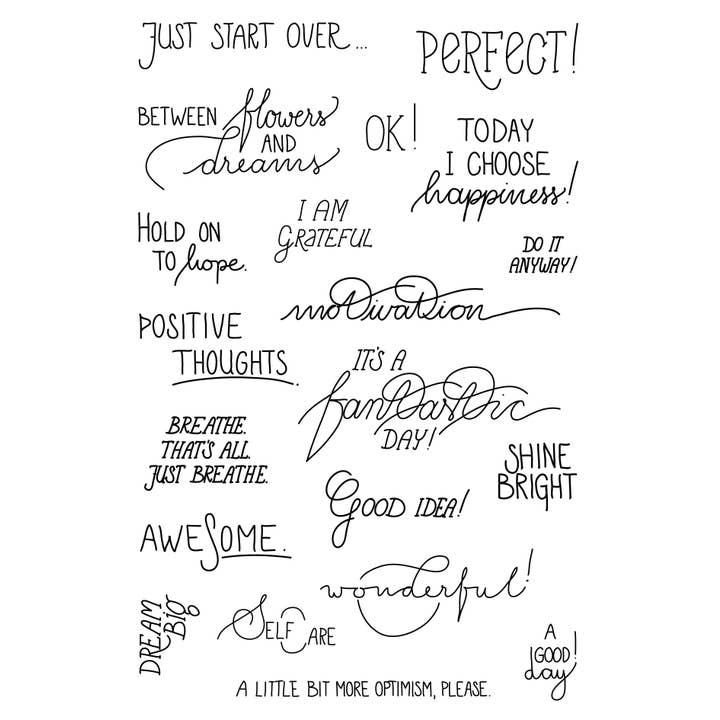 JUST START OVER...
PERFECT!
BETWEEN flowers
AND
dreams
OK!
TODAY
I CHOOSE
happiness!
HOLD ON
TO hope.
I AM
GRATEFUL
DO IT
ANYWAY!
motivation
POSITIVE
THOUGHTS.
IT'S A
fantastic
DAY!
BREATHE.
THAT'S ALL.
JUST BREATHE.
SHINE
BRIGHT
GOOD IDEA!
AWESOME.
wonderful!
DREAM
BIG
SELF CARE
A
GOOD
day!
A LITTLE BIT MORE OPTIMISM, PLEASE.